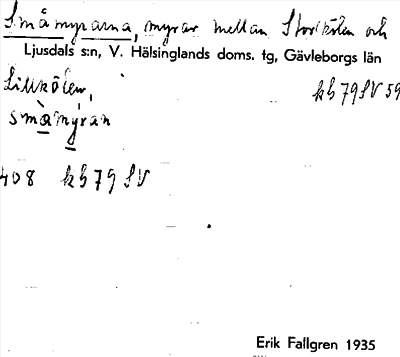 Småmyrarna, myrar mellan Storkölen och
Ljusdals s:n, V. Hälsinglands doms. tg, Gävleborgs län
Lillkölen,
kb 79 SV 59
småmýran
408 kb 79 SV
Erik Fallgren 1935